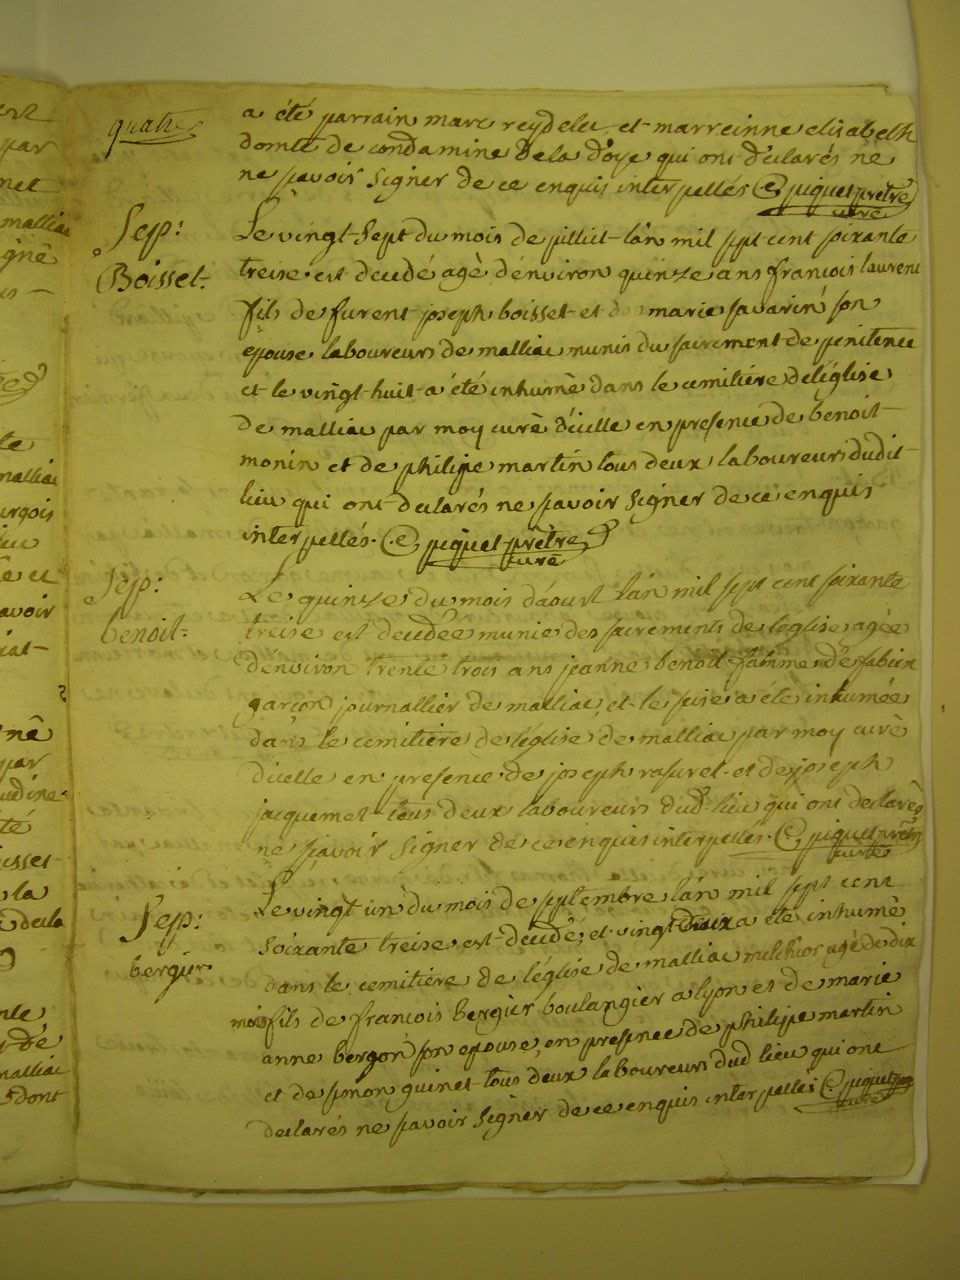 quatre
a été parrain marc reydelet et marreinne elisabeth
domle de condamine de la d'oye qui ont déclarés ne
ne savoir signer de ce enquis interpellés. piquet prêtre
curé
Sep:
Boisset.
Le vingt-sept du mois de juilliet l'an mil sept cent soixante
treise est decedé agè d'énviron quinze ans francois laurent
fils de furent joseph boisset et de marie savarin son
epouse laboureurs de malliac munis du sacrement de penitence
et le vingt huit a été inhumè dans le cemitière de l'église
de malliac par moy curè d'icelle en presence de benoit
monin et de philipe martin tous deux laboureurs dudit
lieu qui ont declarés ne savoir signer de ce enquis
interpellés. piquet prêtre
curé
Sep:
benoit.
Le quinze du mois d'aoust l'an mil sept cent soixante
treise est decedée munie des sacrements de leglise agée
d'environ trente trois ans jeanne benoit famme de fabien
garçon journallier de malliac, et le seise a été inhumée
dans le cemitière de l'église de malliac par moy curè
d'icelle en presence de joseph rasuret et de joseph
jacquemet tous deux laboureurs dud. lieu qui ont declarés
ne savoir signer de ce enquis interpelles. piquet prêtre
curé
Sep:
bergier
Le vingt un du mois de septembre l'an mil sept cent
soixante treise est decedé, et vingt deux a été inhumè
dans le cemitière de l'église de malliac melchior agé de dix
mois fils de francois bergier boulangier a lyon et de marie
anne bergon son epouse, en presence de philipe martin
et de simon guinet tous deux laboureurs dud lieu qui ont
declarés ne savoir signer de ce enquis interpellés. piquet
curé